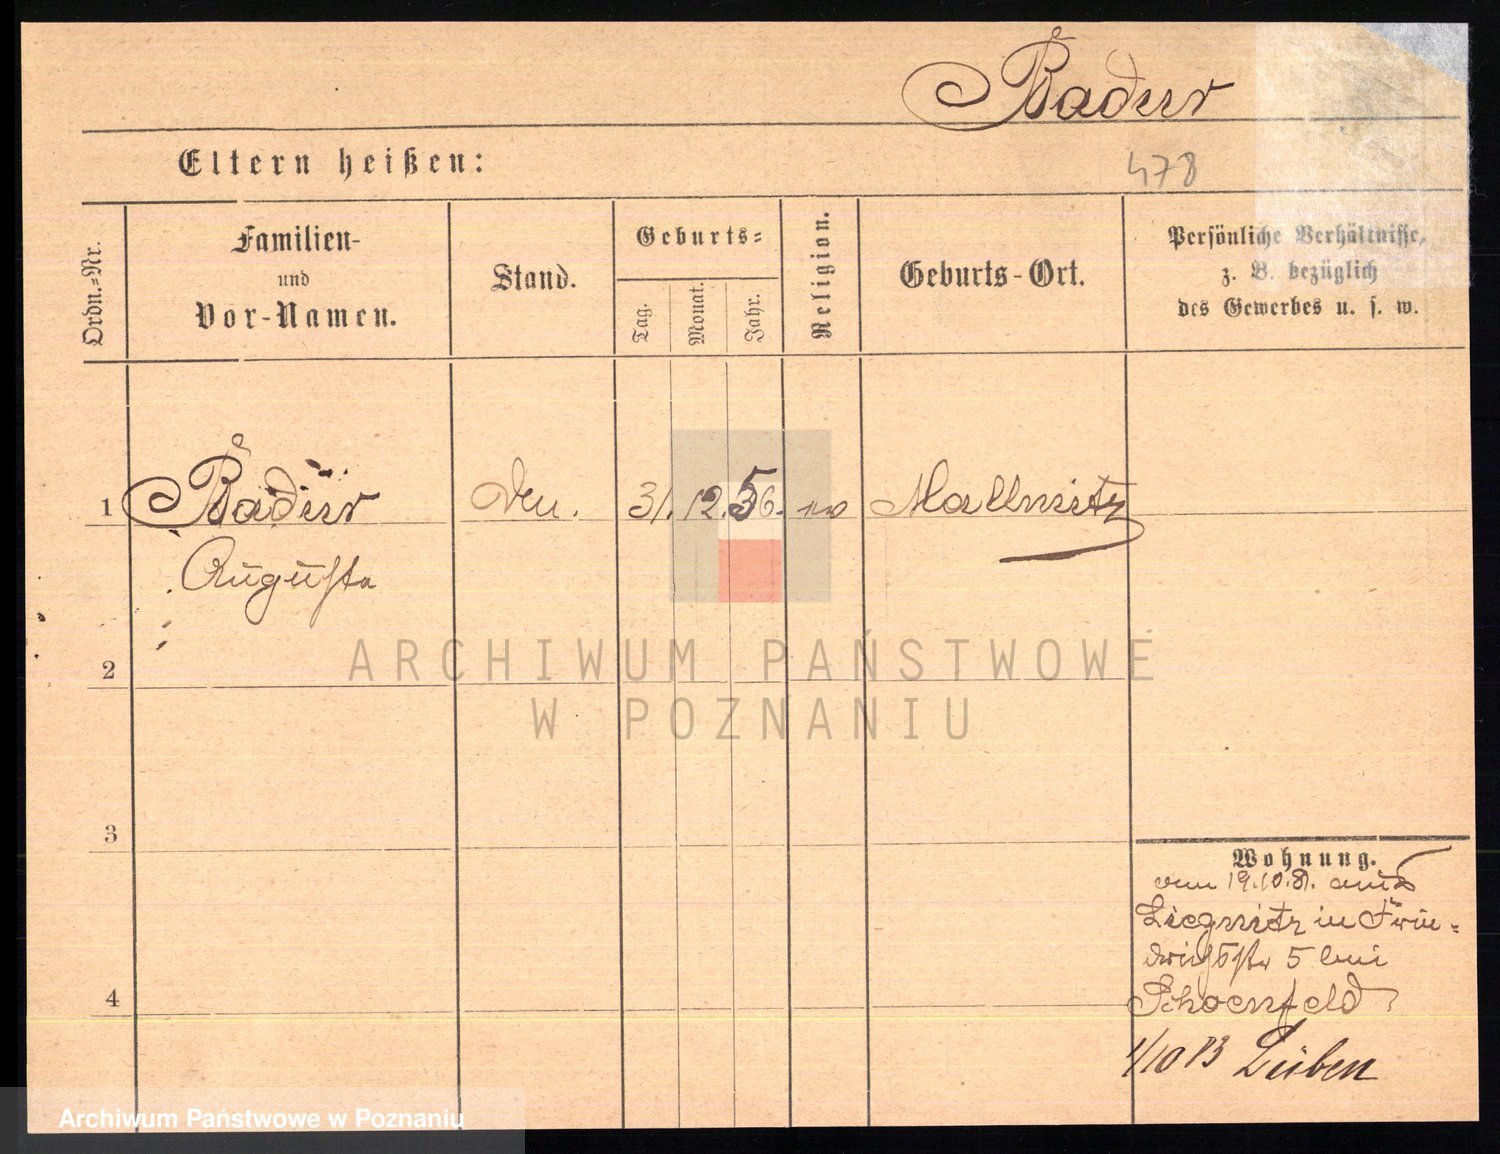 Badur
Eltern heißen:
478
Ordn.-Nr.
Familien-
und
Vor-Namen.
Stand.
Geburts-
Tag.
Monat.
Jahr.
Religion.
Geburts-Ort.
Persönliche Verhältnisse,
z. B. bezüglich
des Gewerbes u. s. w.
1 Badur 31. 12. 56. ev Mallmitz
Augusta
2
ARCHIWUM PAŃSTWOWE
W POZNANIU
3
Wohnung.
vom 19.10.81. aus
Liegnitz in Frie-
drichsstr 5 bei
4
Schoenfeld
1/10 83 Lüben
Archiwum Państwowe w Poznaniu